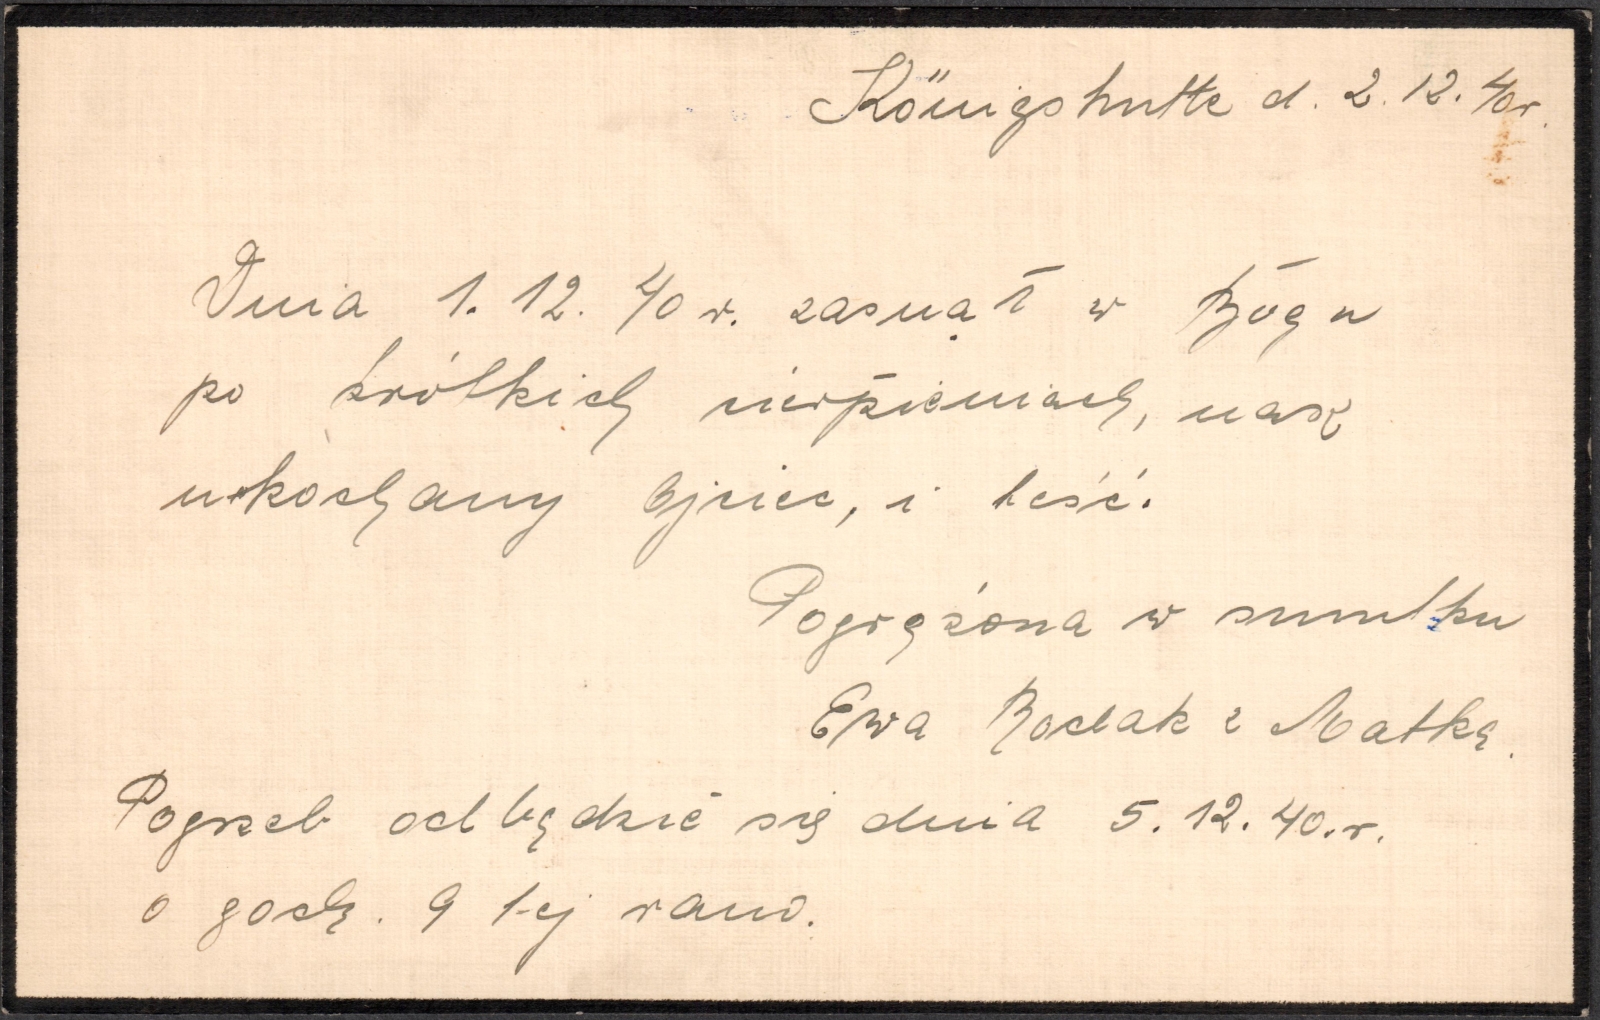 Königshutte d. 2. 12. 40r.
Dnia 1. 12. 40 r. zasnął w Bogu
po krótkich cierpieniach, nasz
ukochany Ojciec, i teść.
Pogrążona w smutku
Ewa z Matką.
Pogrzeb odbędzie się dnia 5. 12. 40. r.
o godz. 9 t-ej rano.